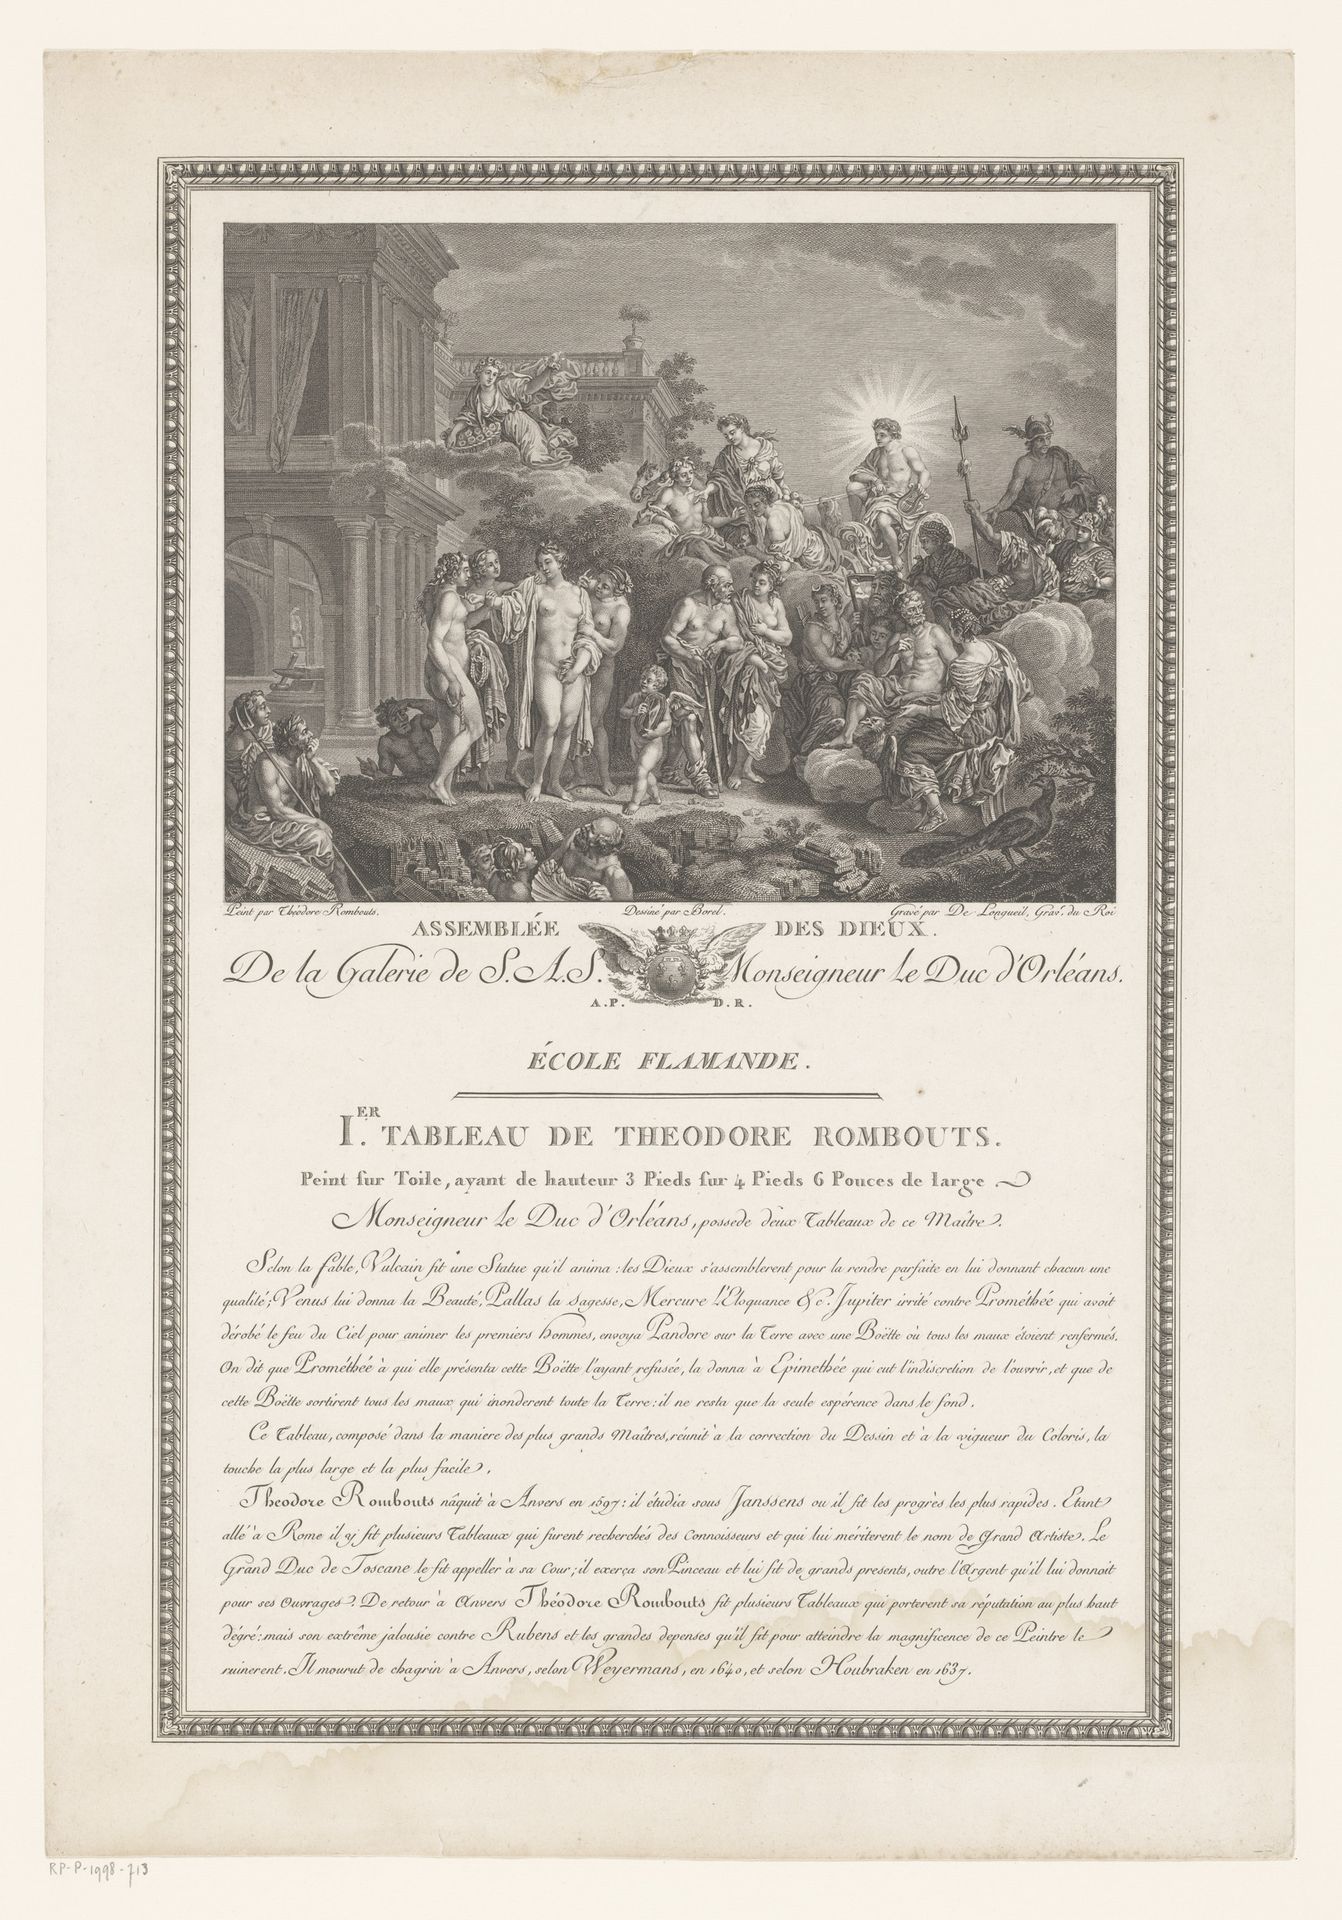 Peint par Théodore Rombouts. Dessiné par Borel. Gravé par De Longueil, Gravr. du Roi
ASSEMBLÉE DES DIEUX.
De la Galerie de S.A.S. Monseigneur le Duc d'Orléans.
A.P. D.R.
ÉCOLE FLAMANDE.
I.ER TABLEAU DE THEODORE ROMBOUTS.
Peint sur Toile, ayant de hauteur 3 Pieds sur 4 Pieds 6 Pouces de large.
Monseigneur le Duc d'Orléans, possede deux Tableaux de ce Maître.
Selon la fable, Vulcain fit une Statue qu'il anima: les Dieux s'assemblerent pour la rendre parfaite en lui donnant chacun une
qualité; Venus lui donna la Beauté, Pallas la Sagesse, Mercure l'Eloquance &c. Jupiter irrité contre Prométhée qui avoit
dérobé le feu du Ciel pour animer les premiers hommes, envoya Pandore sur la Terre avec une Boëtte où tous les maux étoient renfermés.
On dit que Prométhée à qui elle présenta cette Boëtte l'ayant refusée, la donna à Epimethée qui eut l'indiscretion de l'ouvrir, et que de
cette Boëtte sortirent tous les maux qui inonderent toute la Terre: il ne resta que la seule espérence dans le fond.
Ce Tableau, composé dans la maniere des plus grands Maîtres, réunit à la correction du Dessin et à la vigueur du Coloris, la
touche la plus large et la plus facile.
Theodore Rombouts nâquit à Anvers en 1597: il étudia sous Janssens ou il fit les progrès les plus rapides. Etant
allé à Rome il y fit plusieurs Tableaux qui furent recherchés des Connoisseurs et qui lui mériterent le nom de Grand Artiste. Le
Grand Duc de Toscane le fit appeller à sa Cour; il exerça son Pinceau et lui fit de grands presents, outre l'Argent qu'il lui donnoit
pour ses Ouvrages. De retour à Anvers Théodore Rombouts fit plusieurs Tableaux qui porterent sa réputation au plus haut
dégré: mais son extrême jalousie contre Rubens et les grandes depenses qu'il fit pour atteindre la magnificence de ce Peintre le
ruinerent. Il mourut de chagrin à Anvers, selon Weyermans, en 1640, et selon Houbraken en 1637.
RP-P-1998-713